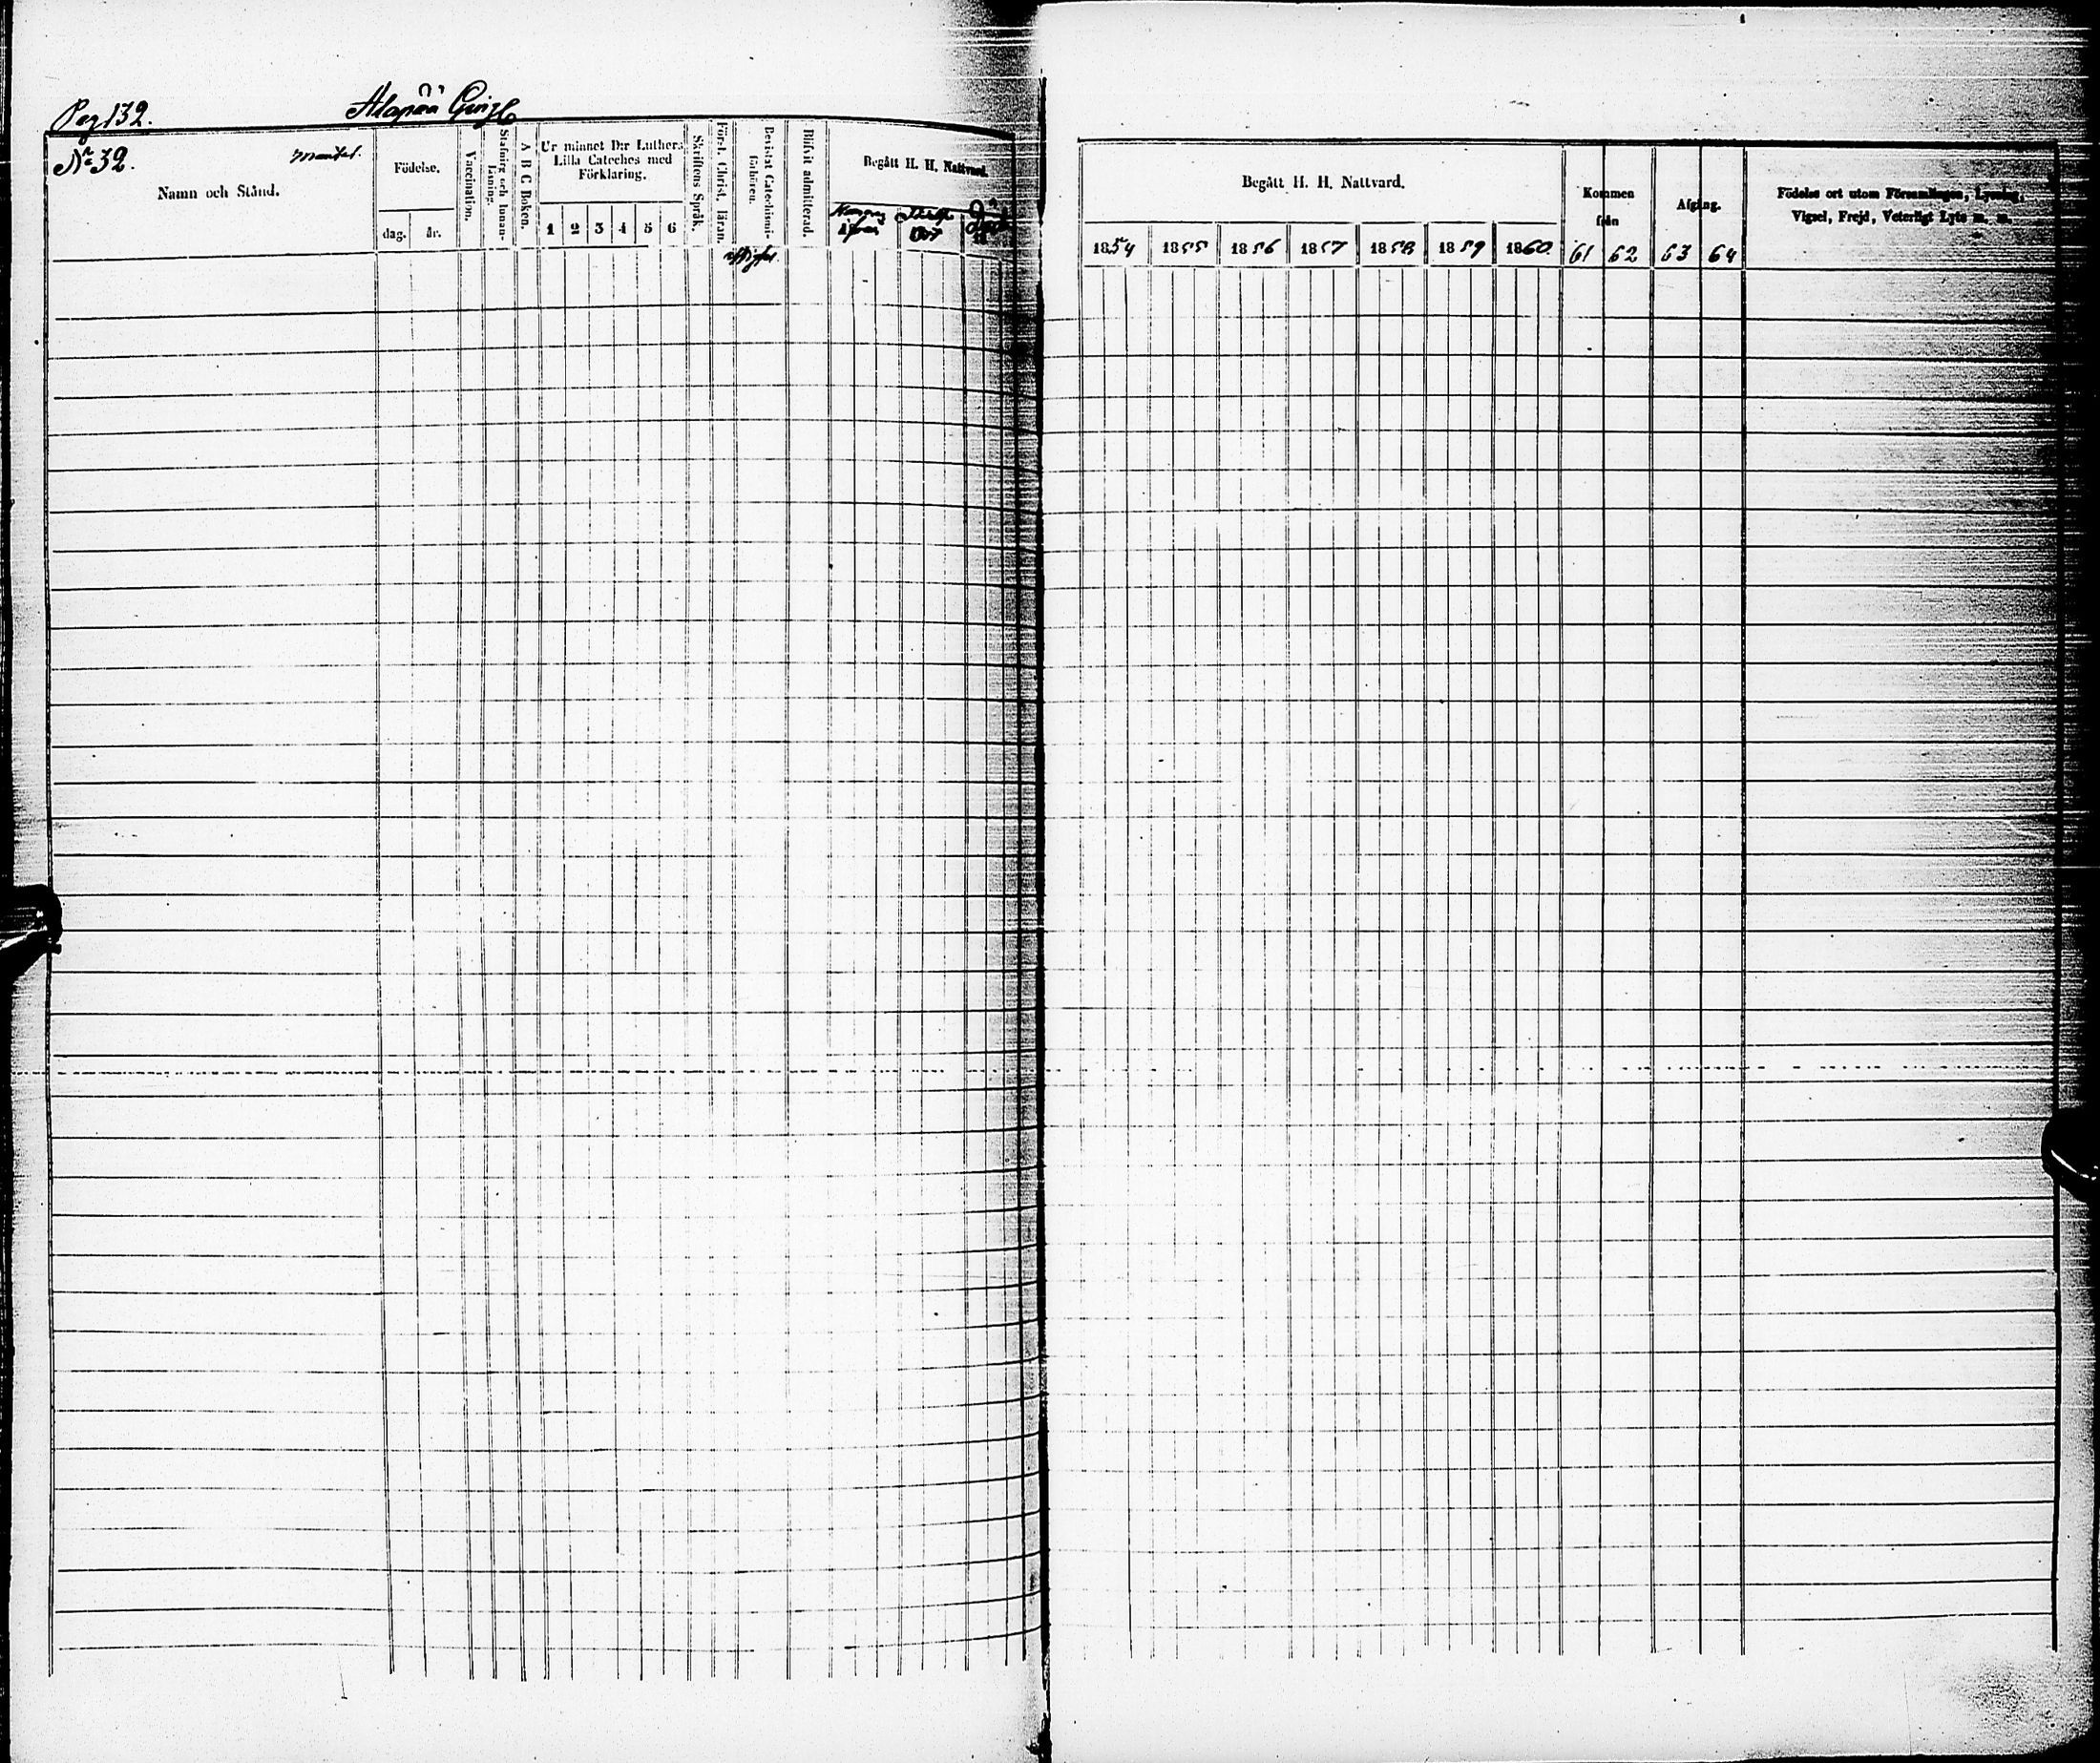 Pag 132.
Alapää
No 32.
mantal.
Namn och Stånd.
Födelse.
dag.
år.
Vaccination.
Stafning och Innan-
läsning.
A B C Boken.
Ur minnet D:r Luthers
Lilla Cateches med
Förklaring.
1 2 3 4 5 6
Skriftens Språk.
Förel. Christ. läran.
Bevistat Catechismi-
förhören.
Blifvit admitterad.
Begått H. H. Nattvard.
Begått H. H. Nattvard.
1854 1855 1856 1857 1858 1859 1860
Kommen
från
61 62
Afgång.
63 64
Födelse ort utom Församlingen, Lysning,
Vigsel, Frejd, Veterligt Lyte m. m.